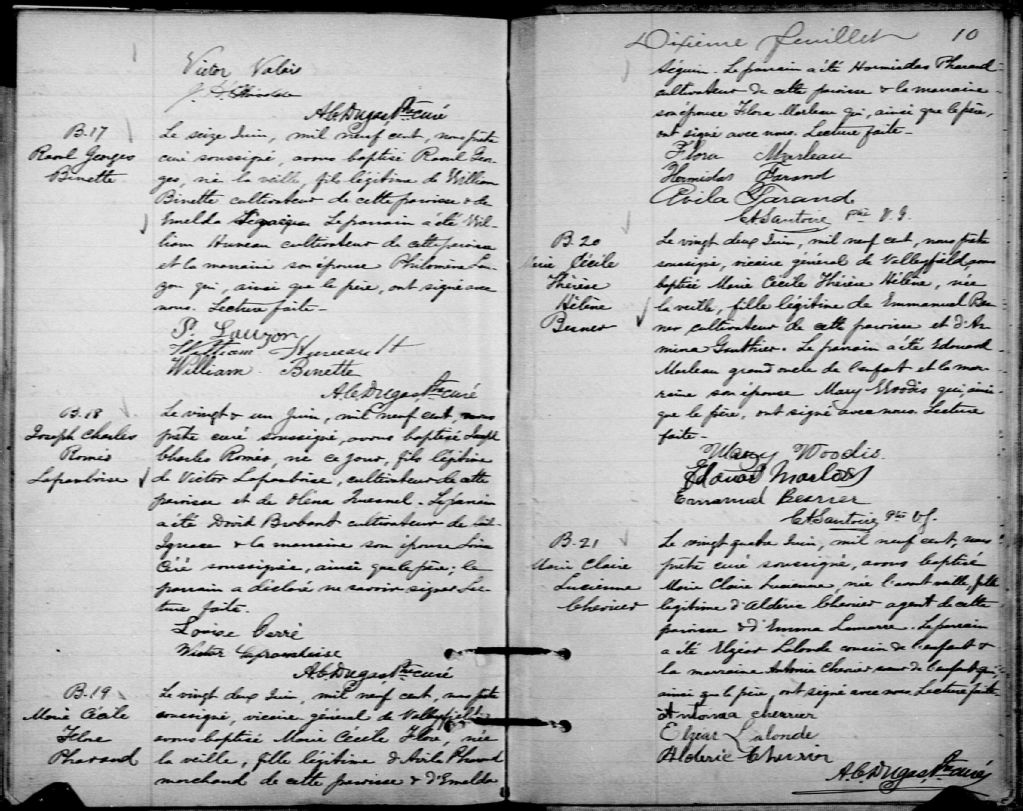 Victor Valois
A. C. Dugas Ptre curé
B.17
Raoul Georges
Binette
Le seize Juin, mil neuf cent, nous prêtre
curé soussigné, avons baptisé Raoul Geor-
ges, né la veille, fils légitime de William
Binette cultivateur de cette paroisse & de
Emelda Le parrain a été Wil-
liam Huneau cultivateur de cette paroisse
et la marraine son épouse Philomène Lau-
zon qui, ainsi que le père, ont signé avec
nous. Lecture faite -
P. Lauzon
William Huneault
William Binette
A. C. Dugas Ptre curé
B.18
Joseph Charles
Roméo
Laframboise
Le vingt & un Juin, mil neuf cent, nous
prêtre curé soussigné, avons baptisé Joseph
Charles Roméo, né ce jour, fils légitime
de Victor Laframboise, cultivateur de cette
paroisse et de Oléna Quesnel. Le parrain
a été David Brabant cultivateur de St
Ignace & la marraine son épouse Loise
Céré soussignée, ainsi que le père; le
parrain a déclaré ne savoir signer. Lec-
ture faite.
Louise Cerré
Victor Laframboise
A. C. Dugas Ptre curé
B.19
Marie Cécile
Flore
Pharand
Le vingt deux Juin, mil neuf cent, nous prêtre
soussigné, vicaire général de Valleyfield
avons baptisé Marie Cécile Flore, née
la veille, fille légitime d'Avila Pharand
marchand de cette paroisse & d'Emelda
Dixième feuillet 10
Séguin. Le parrain a été Hormisdas Pharand
cultivateur de cette paroisse & la marraine
son épouse Flore Marleau qui, ainsi que le père,
ont signé avec nous. Lecture faite -
Flora Marleau
Hormisdas Farand
Avila Farand
C A Santoire ptre V. G.
B.20
Marie Cécile
Thérèse
Hélène
Berner
Le vingt deux Juin, mil neuf cent, nous prêtre
soussigné, vicaire général de Valleyfield, avons
baptisé Marie Cécile Thérèse Hélène, née
la veille, fille légitime de Emmanuel Ber-
ner cultivateur de cette paroisse et d'Ar-
mina Gauthier. Le parrain a été Edouard
Marleau grand oncle de l'enfant et la mar-
raine son épouse Mary Woodis qui, ainsi
que le père, ont signé avec nous. Lecture
faite -
Mary Woodis
Edouard Marleau
Emanuel Besner
C A Santoire Ptre V. G.
B.21
Marie Claire
Lucienne
Chevrier
Le vingt quatre Juin, mil neuf cent, nous
prêtre curé soussigné, avons baptisé
Marie Claire Lucienne, née l'avant veille, fille
légitime d'Aldéric Chevrier agent de cette
paroisse & d'Emma Lamarre. Le parrain
a été Elzéar Lalonde cousin de l'enfant &
la marraine Antonia Chevrier soeur de l'enfant qui,
ainsi que le père, ont signé avec nous. Lecture faite
Antonia cherrier
Elzéar Lalonde
Alderic Cherrier
A. C. Dugas Ptre curé